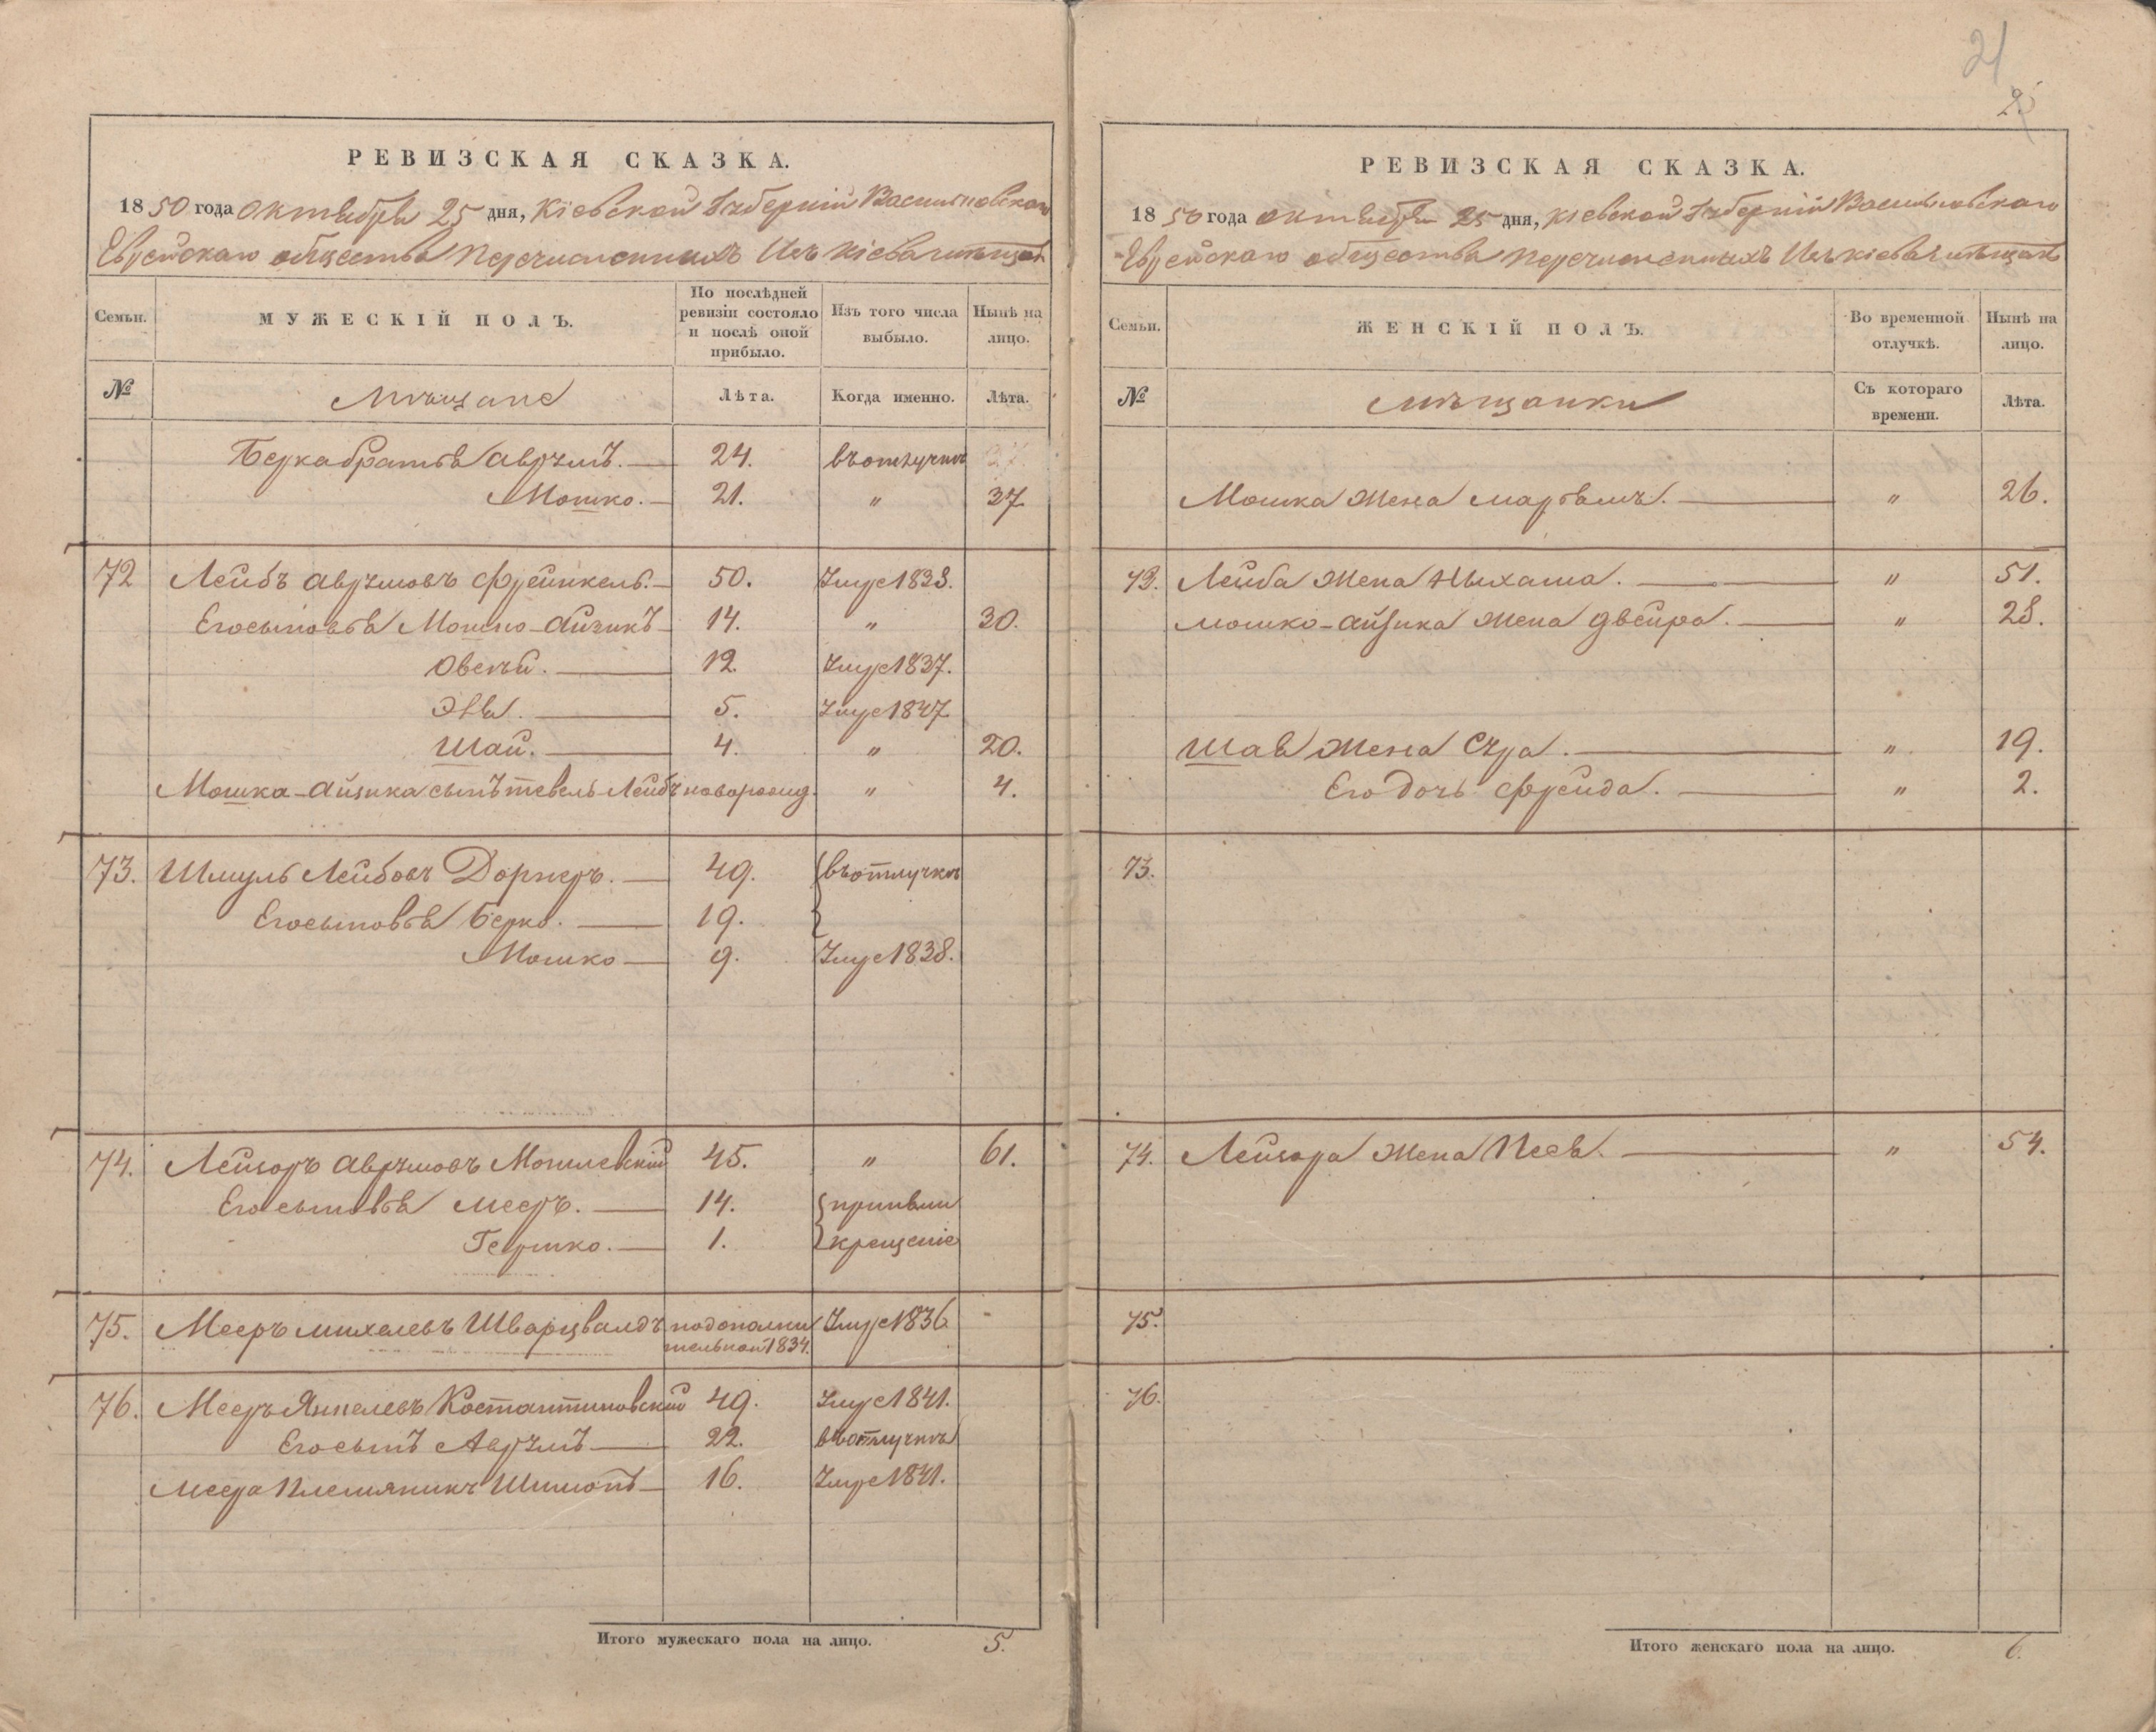 РЕВИЗСКАЯ СКАЗКА.
1850 года Октября 25 дня, Кіевской Губерніи Васильковскаго
Еврейскаго общества перечисленныхъ Изъ Кіева мѣщанъ
Семьи.
МУЖЕСКІЙ ПОЛЪ.
По послѣдней ревизіи состояло и послѣ оной прибыло.
Изъ того числа выбыло.
Нынѣ на лицо.
№
Мѣщане
Лѣта.
Когда именно.
Лѣта.
Берка братья Аврумъ. 24. въ отлучкѣ
Мошко. 21. " 37
72 Лейбъ Аврумовъ Френкель. 50. Умре 1838.
Его сыновья Мошко-Айзикъ 14. " 30.
Овсѣй. 12. Умре 1837.
5. Умре 1847
Шай. 4. " 20.
Мошка-Айзика сынъ Тевель Лейбъ новорожд. " 4.
73. Шмуль Лейбовъ Дорнеръ. 49. въ отлучкѣ
Его сыновья Берко. 19.
Мошко 9. Умре 1838.
74. Лейзоръ Аврумовъ Могилевскій 45. " 61.
Его сыновья Мееръ. 14. приняли
Гершко. 1. крещеніе
75. Мееръ Михелевъ Шварцвалдъ по дополни Умре 1836
тельной 1834.
76. Мееръ Янкелевъ Костантиновскій 49. Умре 1841.
Его сынъ Аврумъ 22. въ отлучкѣ
Меера Племяникъ Шимонъ 16. Умре 1841.
Итого мужескаго пола на лицо. 5.
21
25
РЕВИЗСКАЯ СКАЗКА.
1850 года Октября 25 дня, Кіевской Губерніи Васильковскаго
Еврейскаго общества перечисленныхъ Изъ Кіева мѣщанъ
Семьи.
ЖЕНСКІЙ ПОЛЪ.
Во временной отлучкѣ.
Нынѣ на лицо.
№
Мѣщанки
Съ котораго времени.
Лѣта.
Мошка Жена Марьямъ. " 26.
72. Лейба Жена " 51.
Мошко-Айзика Жена Двейра. " 28.
Шая Жена Сура. " 19.
Его дочь Фрейда. " 2.
73.
74. Лейзора Жена Песя. " 54.
75.
76.
Итого женскаго пола на лицо. 6.